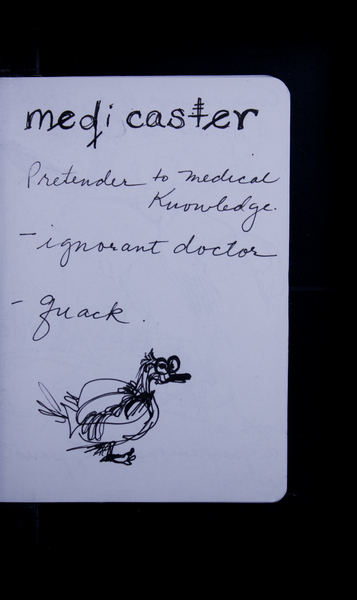 medicaster
Pretender to medical
Knowledge.
- ignorant doctor
- quack.